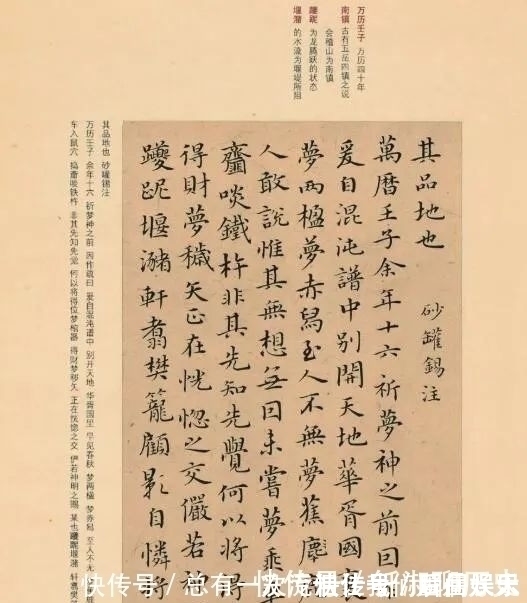 万历壬子 万历四十年
南镇 古有五岳四镇之说
会稽山为南镇
躨跜 为龙腾跃的状态
堰潴 的水流为堰堤所阻
其品地也 砂罐錫注
萬曆壬子余年十六祈夢神之前因
爰自混沌譜中別開天地華胥國
夢两楹夢赤舄至人不無夢蕉鹿
人敢說惟其無想無因未嘗夢乘
齏啖鐵杵非其先知先覺何以將得
得財夢穢矢正在恍惚之交儼若
躨跜堰瀦軒翥樊籠顧影自憐將
其品地也 砂罐锡注
万历壬子 余年十六 祈梦神之前 因作疏曰 爰自混沌谱中 别开天地 华胥国里 早见春秋 梦两楹 梦赤舄 至人不无
车入鼠穴 捣齑啖铁杵 非其先知先觉 何以将得位梦棺器 得财梦秽矢 正在恍惚之交 俨若神明之赐 某也躨跜堰潴 轩翥樊
快传号 / 总有一次